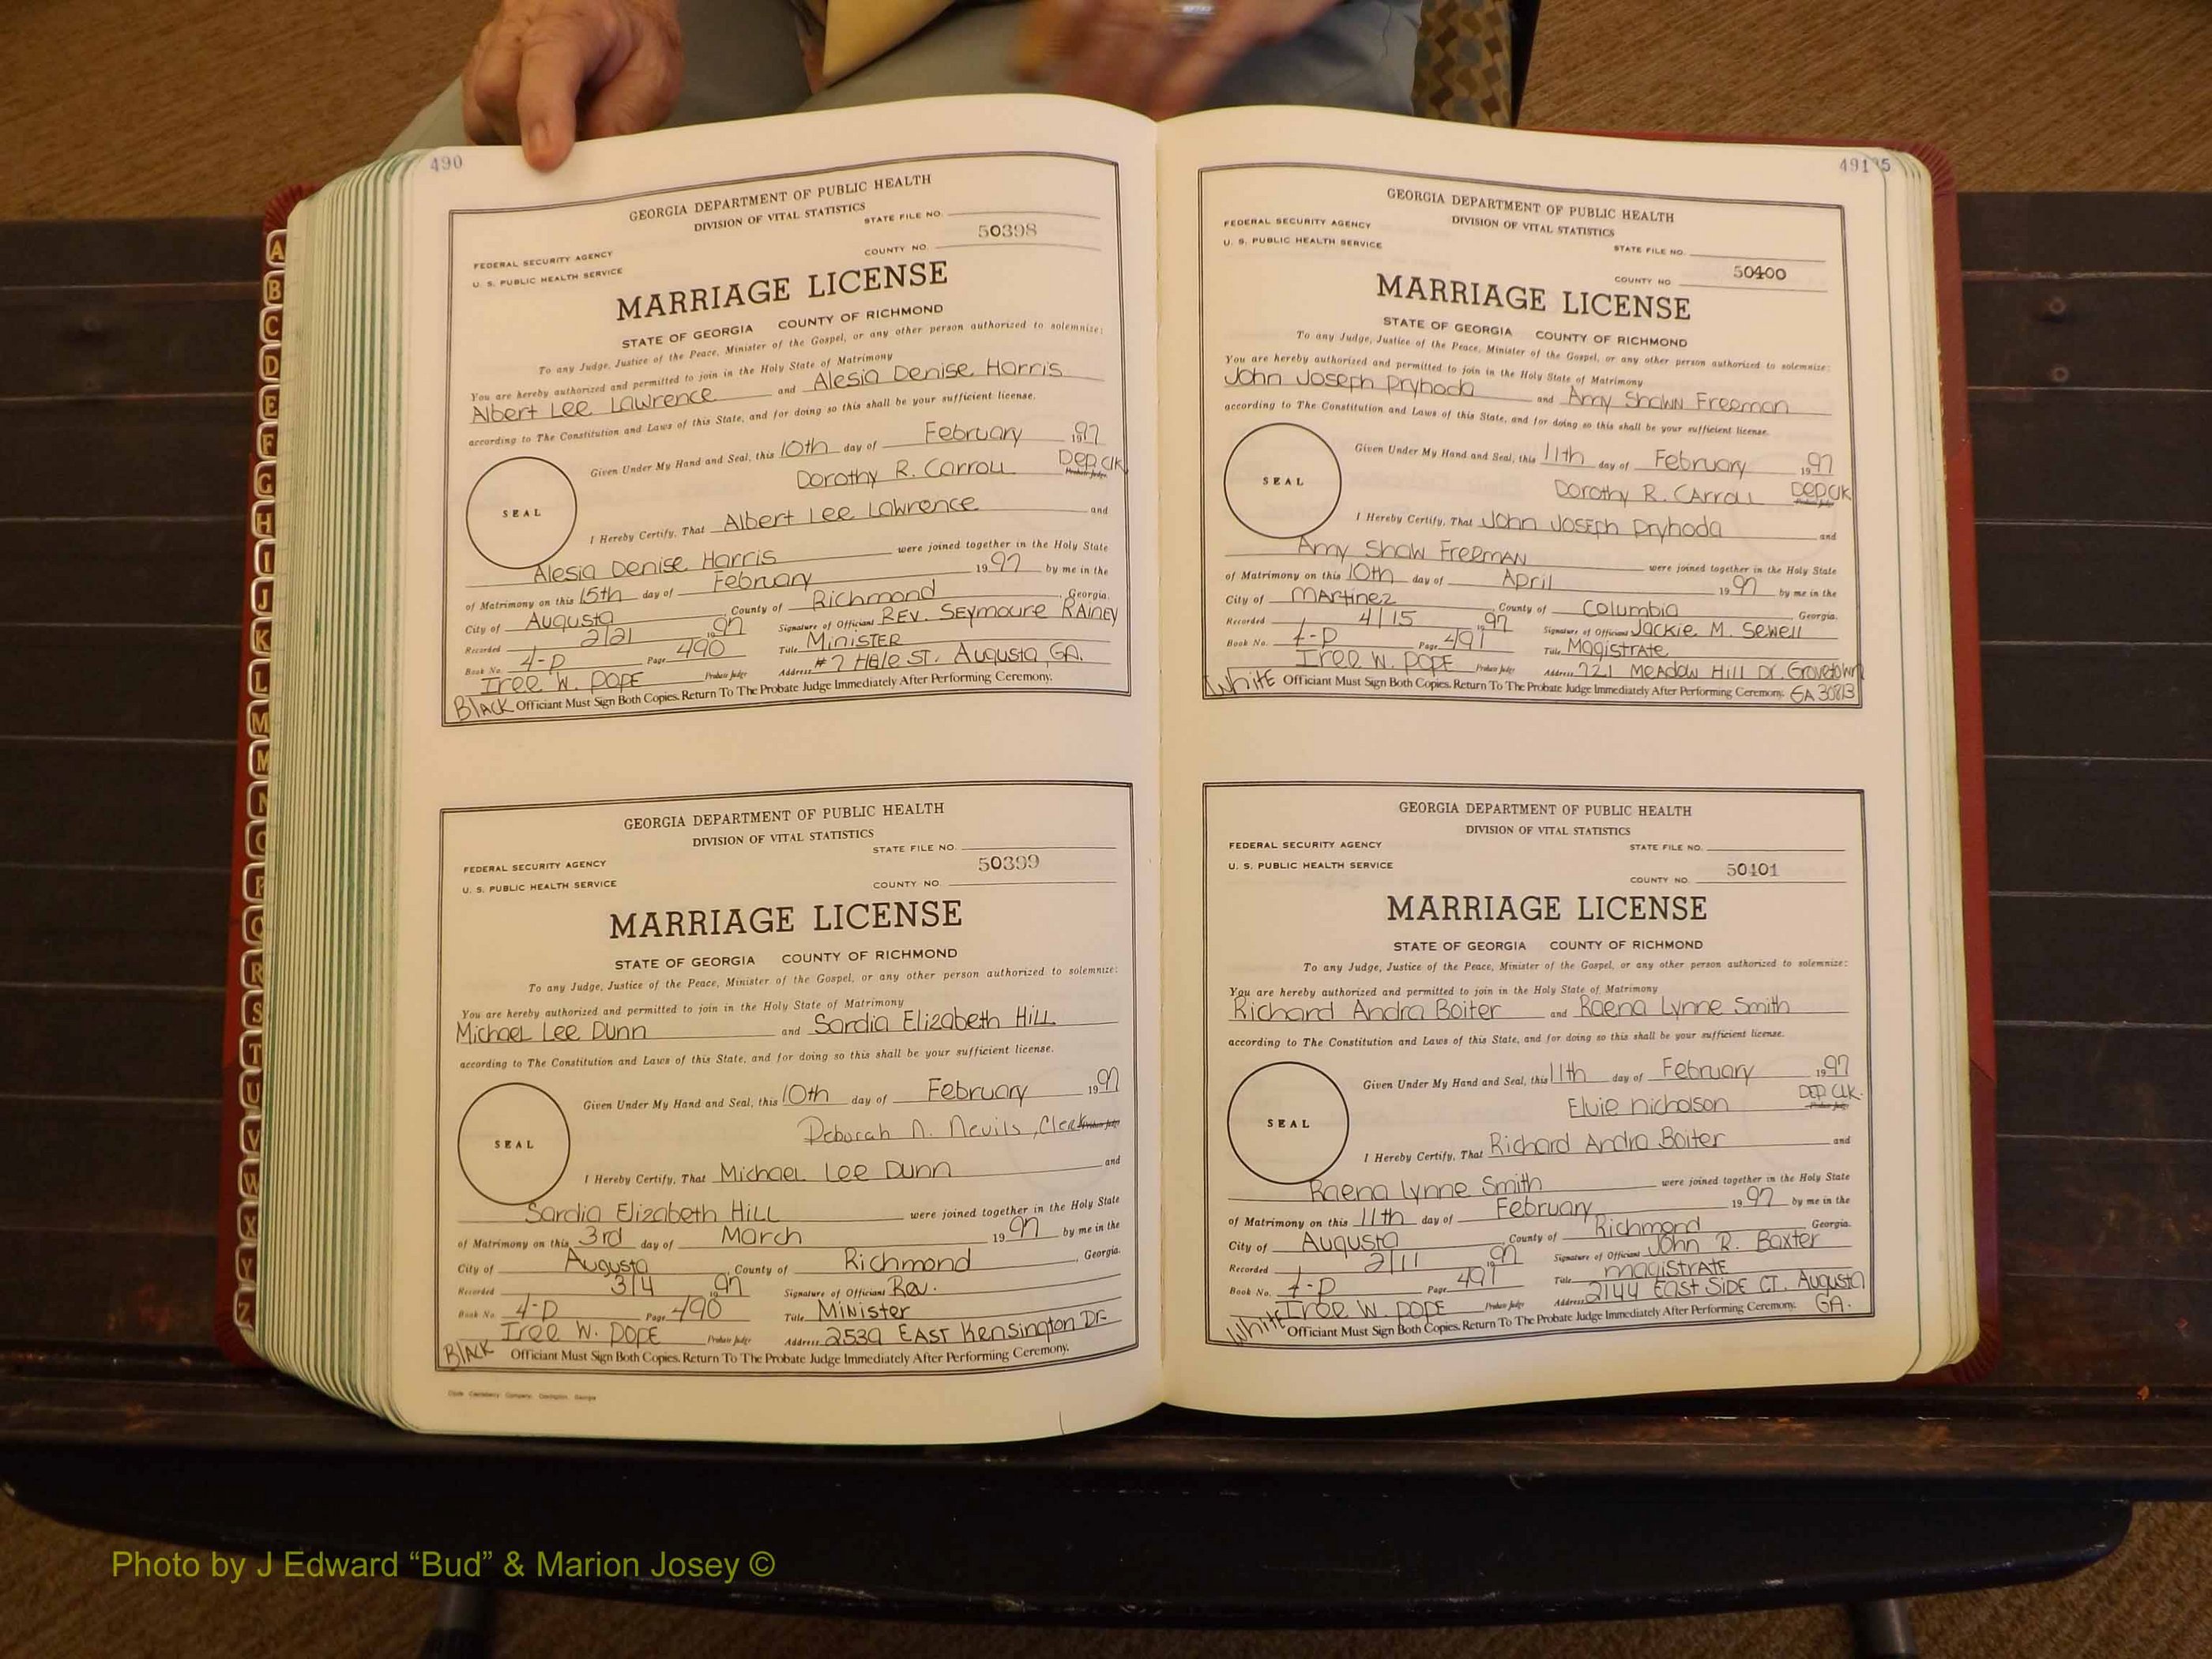 490
GEORGIA DEPARTMENT OF PUBLIC HEALTH
DIVISION OF VITAL STATISTICS
STATE FILE NO.
50398
FEDERAL SECURITY AGENCY
COUNTY NO.
U. S. PUBLIC HEALTH SERVICE
MARRIAGE LICENSE
STATE OF GEORGIA COUNTY OF RICHMOND
To any Judge, Justice of the Peace, Minister of the Gospel, or any other person authorized to solemnize:
You are hereby authorized and permitted to join in the Holy State of Matrimony
Albert Lee Lawrence and Alesia Denise Harris
according to The Constitution and Laws of this State, and for doing so this shall be your sufficient license.
Given Under My Hand and Seal, this 10th day of February 1997
Dorothy R. Carroll Dep Clk
Probate Judge
SEAL
I Hereby Certify, That Albert Lee Lawrence and
Alesia Denise Harris were joined together in the Holy State
of Matrimony on this 15th day of February 1997 by me in the
City of Augusta, County of Richmond, Georgia.
Recorded 2/21 1997 Signature of Officiant REV. Seymoure Rainey
Book No. 4-P Page 490 Title Minister
Iree W. Pope Probate Judge Address #7 Hale St. Augusta, GA.
Black Officiant Must Sign Both Copies. Return To The Probate Judge Immediately After Performing Ceremony.
GEORGIA DEPARTMENT OF PUBLIC HEALTH
DIVISION OF VITAL STATISTICS
STATE FILE NO.
FEDERAL SECURITY AGENCY
50399
U. S. PUBLIC HEALTH SERVICE
COUNTY NO.
MARRIAGE LICENSE
STATE OF GEORGIA COUNTY OF RICHMOND
To any Judge, Justice of the Peace, Minister of the Gospel, or any other person authorized to solemnize:
You are hereby authorized and permitted to join in the Holy State of Matrimony
Michael Lee Dunn and Sardia Elizabeth Hill
according to The Constitution and Laws of this State, and for doing so this shall be your sufficient license.
Given Under My Hand and Seal, this 10th day of February 1997
Deborah N. Nevils, Clerk Probate Judge
SEAL
I Hereby Certify, That Michael Lee Dunn and
Sardia Elizabeth Hill were joined together in the Holy State
of Matrimony on this 3rd day of March 1997 by me in the
City of Augusta, County of Richmond, Georgia.
Recorded 3/4 1997 Signature of Officiant Rev.
Book No. 4-P Page 490 Title Minister
Iree W. Pope Probate Judge Address 2539 East Kensington Dr
Black Officiant Must Sign Both Copies. Return To The Probate Judge Immediately After Performing Ceremony.
491 5
GEORGIA DEPARTMENT OF PUBLIC HEALTH
DIVISION OF VITAL STATISTICS
FEDERAL SECURITY AGENCY
U. S. PUBLIC HEALTH SERVICE
STATE FILE NO.
50400
COUNTY NO.
MARRIAGE LICENSE
STATE OF GEORGIA COUNTY OF RICHMOND
To any Judge, Justice of the Peace, Minister of the Gospel, or any other person authorized to solemnize:
You are hereby authorized and permitted to join in the Holy State of Matrimony
John Joseph Pryhoda and Amy Shawn Freeman
according to The Constitution and Laws of this State, and for doing so this shall be your sufficient license.
Given Under My Hand and Seal, this 11th day of February 1997
Dorothy R. Carroll Dep Clk
Probate Judge
SEAL
I Hereby Certify, That John Joseph Pryhoda and
Amy Shaw Freeman were joined together in the Holy State
of Matrimony on this 10th day of April 1997 by me in the
City of Martinez, County of Columbia, Georgia.
Recorded 4/15 1997 Signature of Officiant Jackie M. Sewell
Book No. 4-P Page 491 Title Magistrate
Iree W. Pope Probate Judge Address 721 Meadow Hill Dr. Grovetown
White Officiant Must Sign Both Copies. Return To The Probate Judge Immediately After Performing Ceremony. GA 30813
GEORGIA DEPARTMENT OF PUBLIC HEALTH
DIVISION OF VITAL STATISTICS
FEDERAL SECURITY AGENCY
STATE FILE NO.
U. S. PUBLIC HEALTH SERVICE
50401
COUNTY NO.
MARRIAGE LICENSE
STATE OF GEORGIA COUNTY OF RICHMOND
To any Judge, Justice of the Peace, Minister of the Gospel, or any other person authorized to solemnize:
You are hereby authorized and permitted to join in the Holy State of Matrimony
Richard Andra Boiter and Raena Lynne Smith
according to The Constitution and Laws of this State, and for doing so this shall be your sufficient license.
Given Under My Hand and Seal, this 11th day of February 1997
Elvie Nicholson Dep Clk.
Probate Judge
SEAL
I Hereby Certify, That Richard Andra Boiter and
Raena Lynne Smith were joined together in the Holy State
of Matrimony on this 11th day of February 1997 by me in the
City of Augusta, County of Richmond, Georgia.
Recorded 2/11 1997 Signature of Officiant John R. Baxter
Book No. 4-P Page 491 Title Magistrate
Iree W. Pope Probate Judge Address 2144 East Side Ct. Augusta
White Officiant Must Sign Both Copies. Return To The Probate Judge Immediately After Performing Ceremony. GA.
A
B
C
D
E
F
G
H
I
J
K
L
M
M
N
O
P
Q
R
S
T
U
V
W
X
Y
Z
Photo by J Edward “Bud” & Marion Josey ©